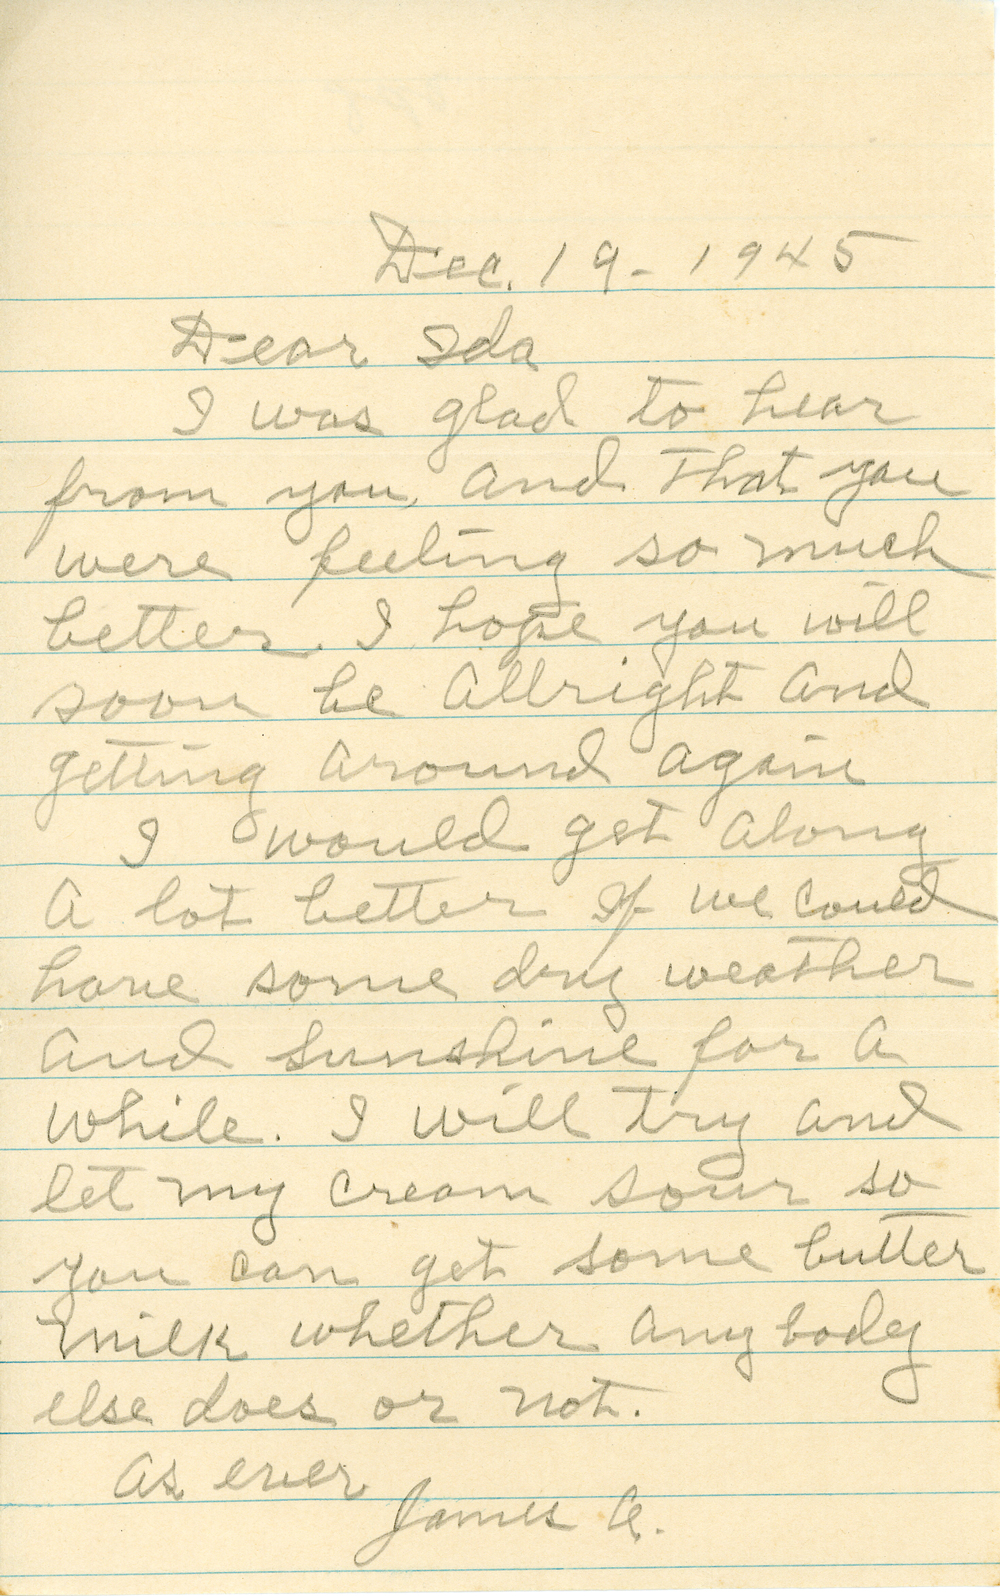 Dec. 19 - 1945
Dear Ida
I was glad to hear
from you, and that you
were feeling so much
better. I hope you will
soon be allright and
getting around again
I would get along
a lot better if we could
have some dry weather
and sunshine for a
while. I will try and
let my cream sour so
you can get some butter
milk whether any body
else does or not.
As ever
James A.